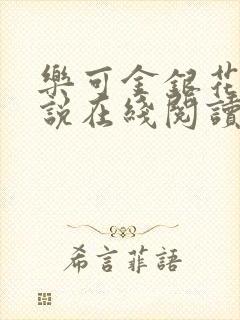 樂可金銀花
說在綫閱讀
希言菲語